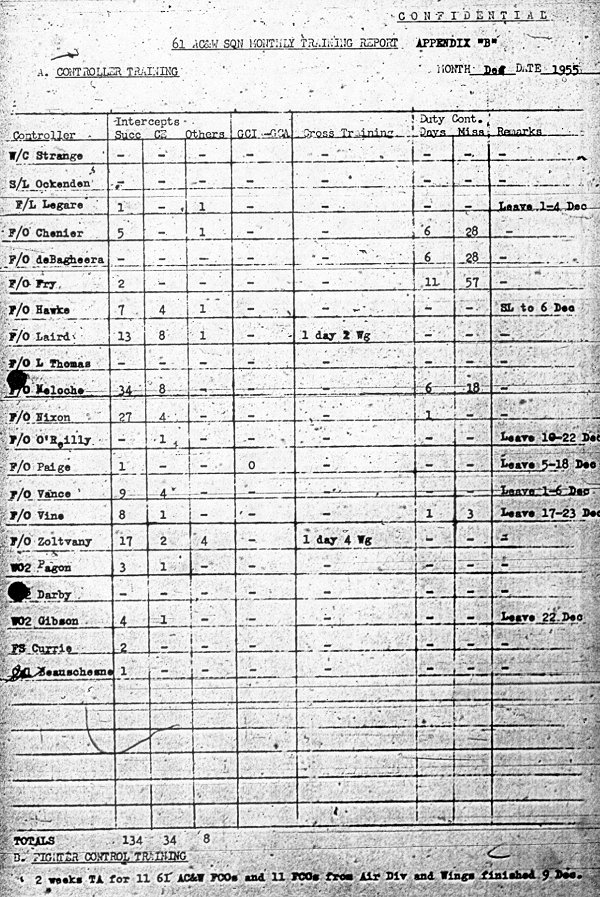 CONFIDENTIAL
61 AC&W SQN MONTHLY TRAINING REPORT APPENDIX "B"
A. CONTROLLER TRAINING MONTH Dec DATE 1955
Intercepts Duty Cont.
Controller Succ CE Others GCI-GCA Cross Training Days Miss Remarks
W/C Strange - - - - - - - -
S/L Ockenden - - - - - - - -
F/L Legare 1 - 1 - - - - Leave 1-4 Dec
F/O Chenier 5 - 1 - - 6 28 -
F/O deBagheera - - - - - 6 28 -
F/O Fry 2 - - - - 11 57 -
F/O Hawke 7 4 1 - - - - SL to 6 Dec
F/O Laird 13 8 1 - 1 day 2 Wg - - -
F/O L Thomas - - - - - - - -
F/O Meloche 34 8 - - - 6 18 -
F/O Nixon 27 4 - - - 1 - -
F/O O'Reilly - 1 - - - - - Leave 10-22 Dec
F/O Paige 1 - - 0 - - - Leave 5-18 Dec
F/O Vance 9 4 - - - - - Leave 1-6 Dec
F/O Vine 8 1 - - - 1 3 Leave 17-23 Dec
F/O Zoltvany 17 2 4 - 1 day 4 Wg - - -
WO2 Pagon 3 1 - - - - - -
Darby - - - - - - - -
WO2 Gibson 4 1 - - - - - Leave 22 Dec
FS Currie 2 - - - - - - -
Beauschesne 1 - - - - - - -
TOTALS 134 34 8
B. FIGHTER CONTROL TRAINING
2 weeks TA for 11 61 AC&W FCOs and 11 FCOs from Air Div and Wings finished 9 Dec.